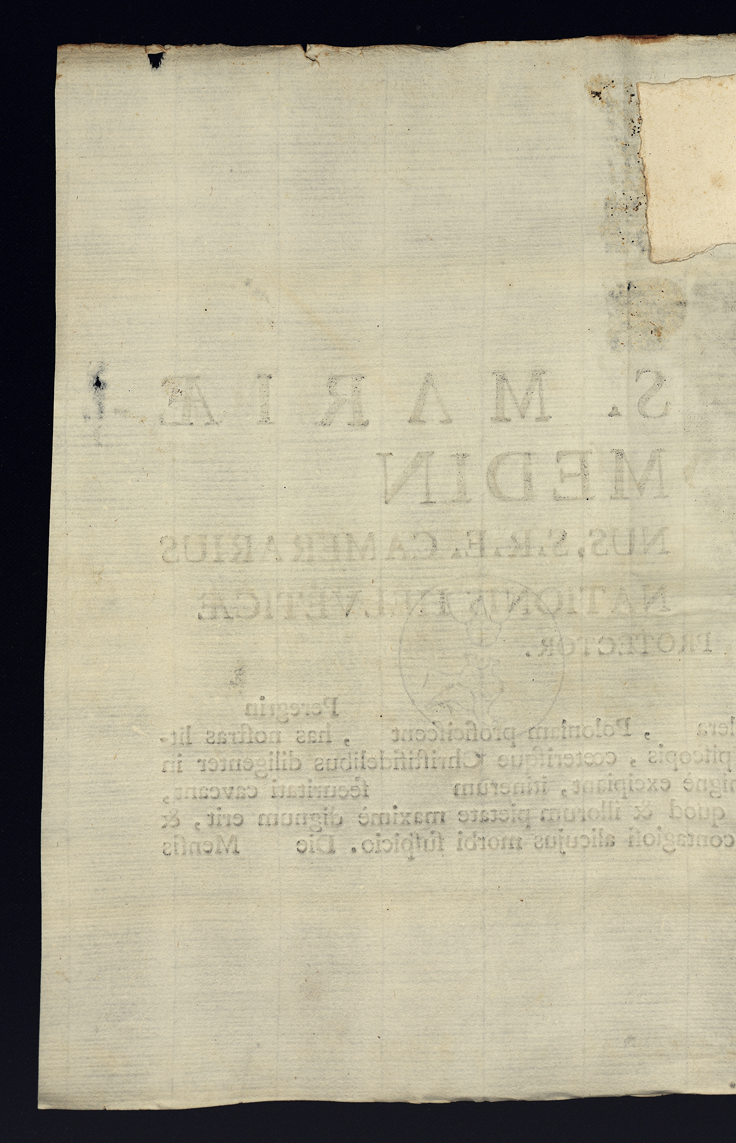 S. MARIÆ
MEDIN
NUS, S.R.E. CAMERARIUS
NATIONIS HELVETICÆ
PROTECTOR.
Peregrin
, Poloniam proficiſcent , has noſtras lit-
piſcopis , cœteriſque Chriſtifidelibus diligenter in
nignè excipiant, itinerum ſecuritati caveant,
quod & illorum pietate maximè dignum erit, &
contagioſi alicujus morbi ſuſpicio. Die Menſis